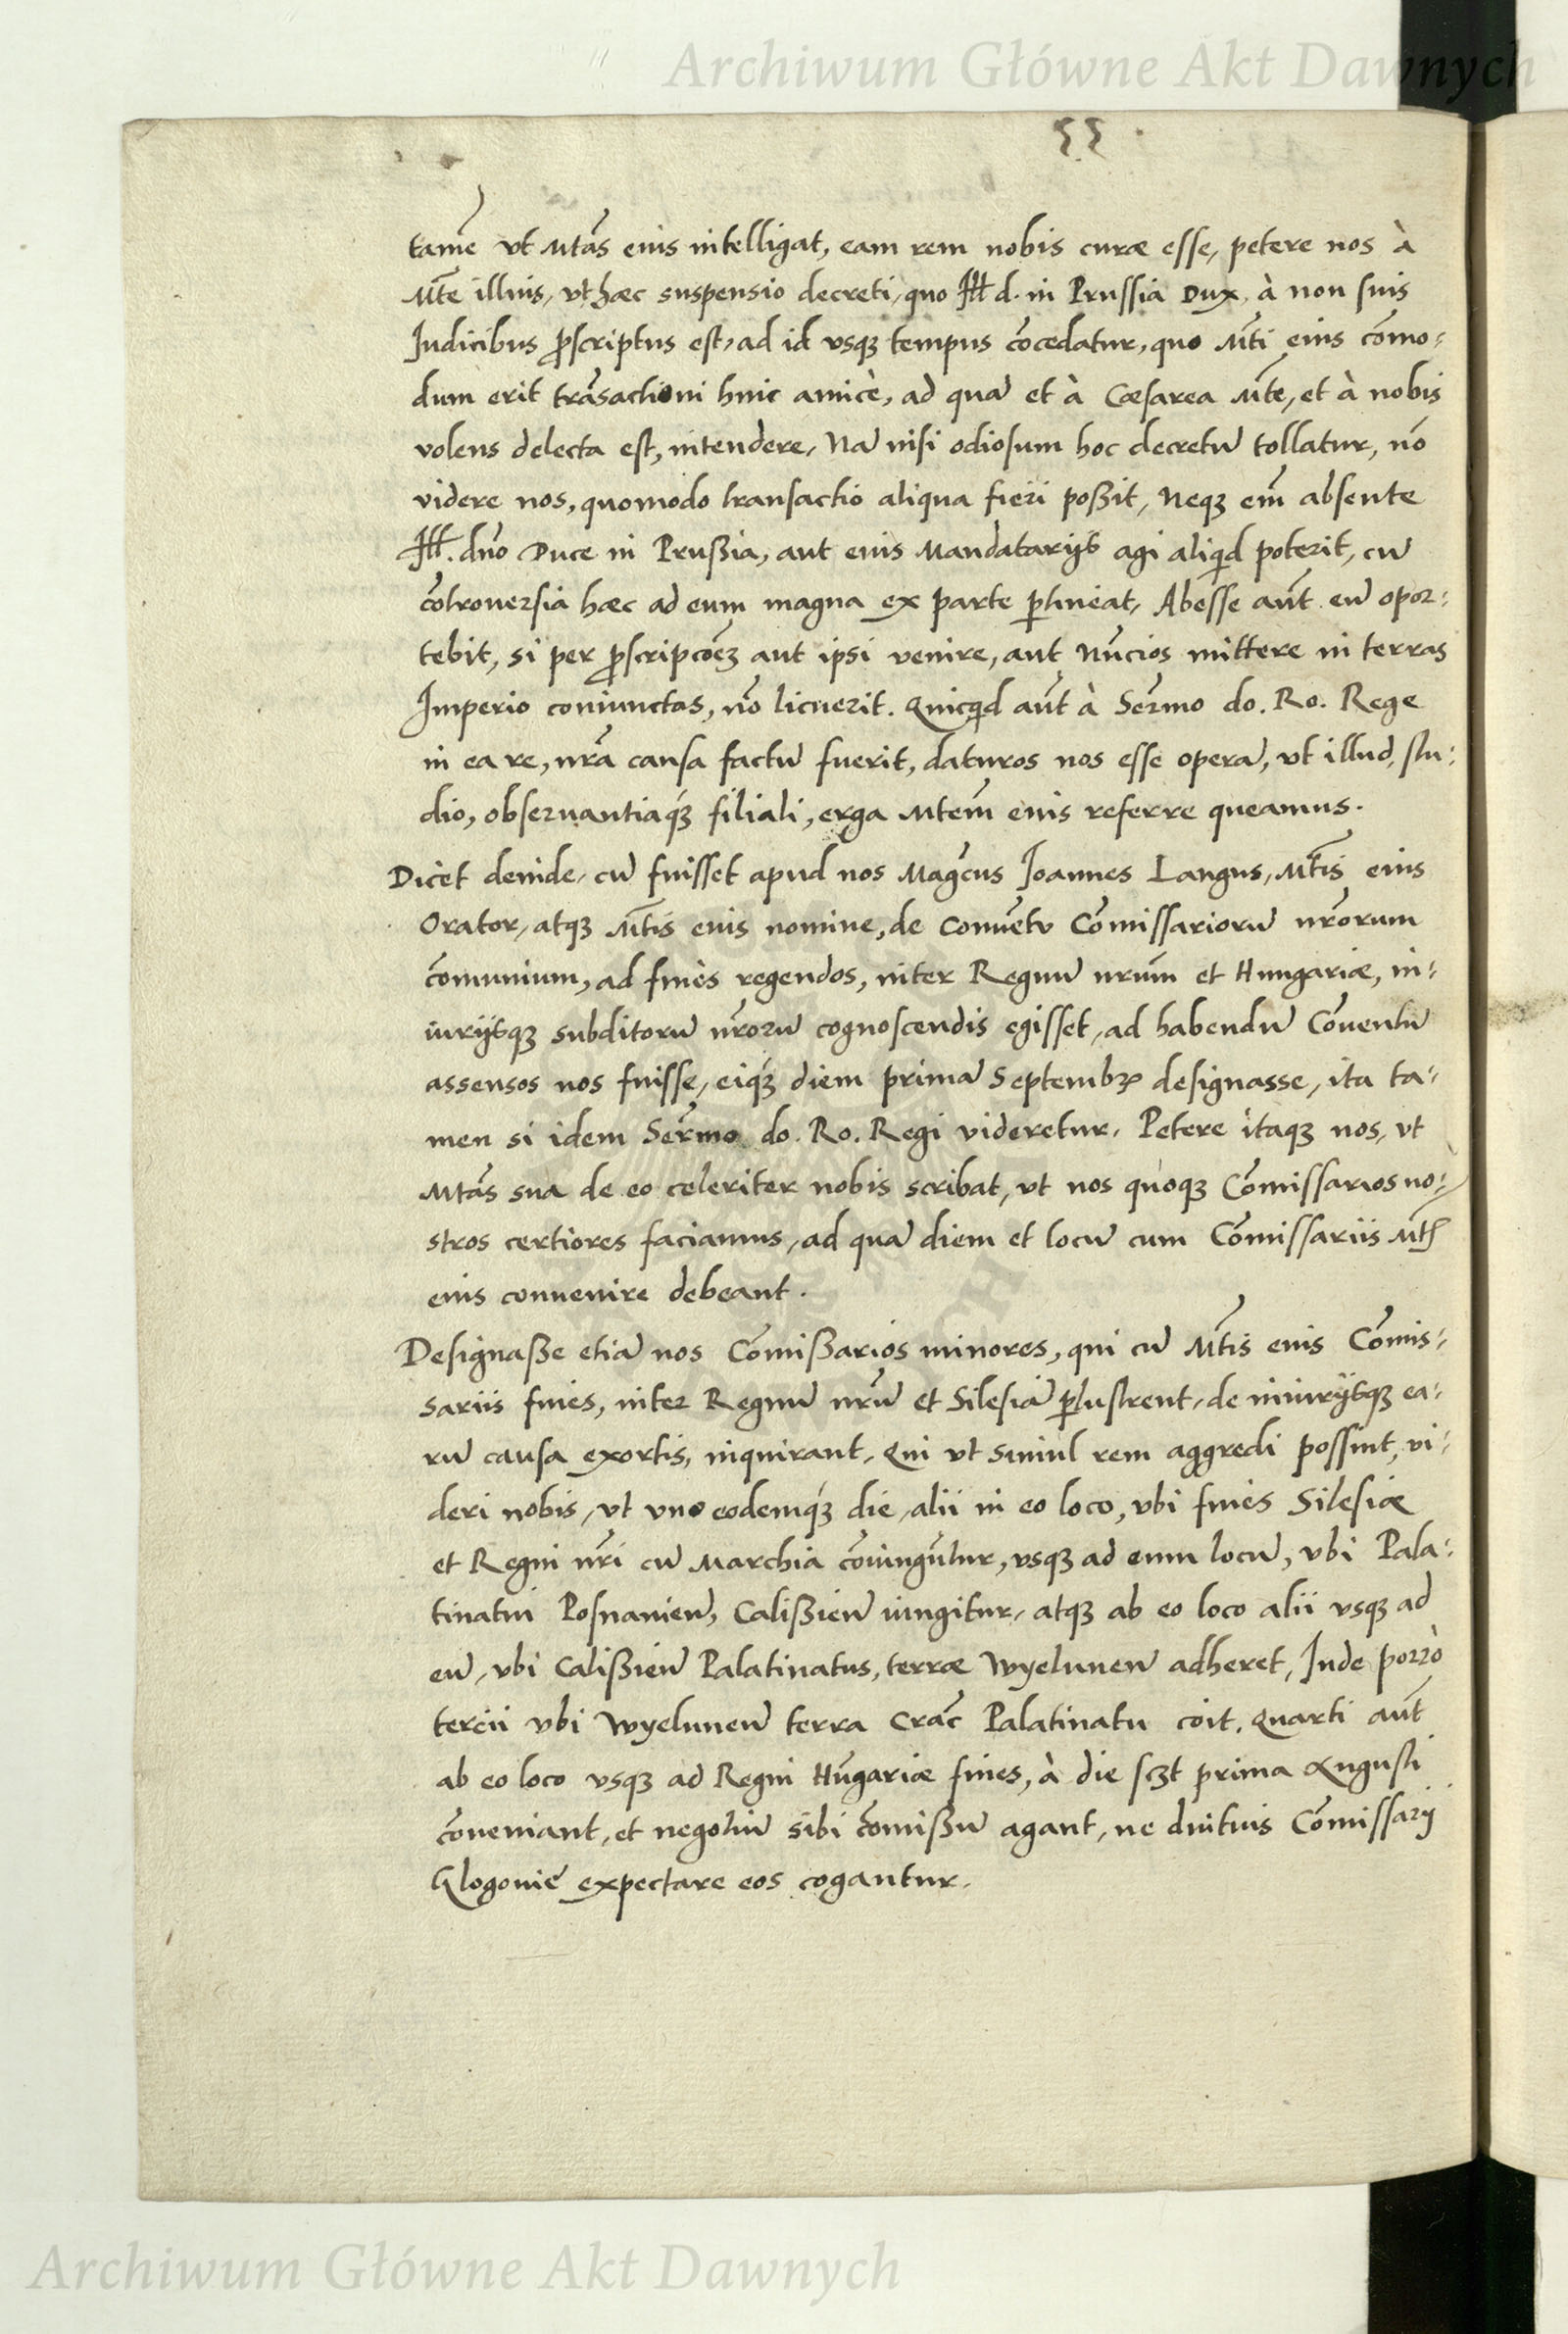 Archiwum Główne Akt Dawnych
55.
tamē vt Mtās eius intelligat, eam rem nobis curæ esse, petere nos à
Mte̅ illius, vt hæc suspensio decreti, quo Ill d. in Prussia Dux, à non suis
Iudicibus ꝓscriptus est, ad id vsqꝫ tempus cōcedatur, quo Mti̅ eius cōmo-
dum erit trāsactioni huic amicè, ad quā et à Cæsarea Mte̅, et à nobis
volens delecta est, intendere, Nā nisi odiosum hoc decretū tollatur, nō
videre nos, quomodo transactio aliqua fieri poßit, Neqꝫ em̄ absente
Ill. dn̄o Duce in Prußia, aut eius Mandatarijs agi aliqd poterit, cū
cōtrouersia hæc ad eum magna ex parte ꝑtineat, Abesse aūt eū opor-
tebit, si per ꝓscripcōeꝫ aut ipsi venire, aut Nūcios mittere in terras
Imperio coniunctas, nō licuerit. Quicqd aūt à Serm̄o do. Ro. Rege
in ea re, nr̄a causa factū fuerit, daturos nos esse operā, vt illud, stu-
dio, obseruantiaqꝫ filiali, erga Mtem̄ eius referre queamus.
Dicet deinde, cū fuisset apud nos Magc̄us Ioannes Langus, Mtis̄ eius
Orator, atqꝫ Mtis̄ eius nomine, de Conuētu Cōmissariorū nr̄orum
cōmunium, ad fines regendos, inter Regnū nrūm et Hungariæ, in-
iurijsqꝫ subditorū nr̄orū cognoscendis egisset, ad habendū Cōuentū
assensos nos fuisse, eiqꝫ diem primā Septembꝝ designasse, ita ta-
men si idem Serm̄o do. Ro. Regi videretur. Petere itaqꝫ nos, vt
Mtās sua de eo celeriter nobis scribat, vt nos quoqꝫ Cōmissarios no-
stros certiores faciamus, ad quā diem et locū cum Cōmissariis Mtis̄
eius conuenire debeant.
Designaße etiā nos Cōmißarios minores, qui cū Mtis̄ eius Cōmis-
sariis fines, inter Regnū nrū̄ et Silesiā ꝑlustrent, de iniurijsqꝫ ea-
rū causa exortis, inquirant, Qui vt simul rem aggredi possint, vi-
deri nobis, vt vno eodemqꝫ die, alii in eo loco, vbi fines Silesiæ
et Regni nr̄i cū Marchia cōiungūtur, vsqꝫ ad eum locū, vbi Pala-
tinatui Posnanieñ, Calißieñ iungitur, atqꝫ ab eo loco alii vsqꝫ ad
eū, vbi Calißieñ Palatinatus, terræ Wyeluneñ adheret, Inde porrò
tercii vbi Wyeluneñ terra Crac̄ Palatinatu coit. Quarti aūt
ab eo loco vsqꝫ ad Regni Hūgariæ fines, à die scꝫt prima Augusti
cōueniant, et negotiū sibi cōmißū agant, ne diutius Cōmissarij
Glogouie expectare eos cogantur.
Archiwum Główne Akt Dawnych